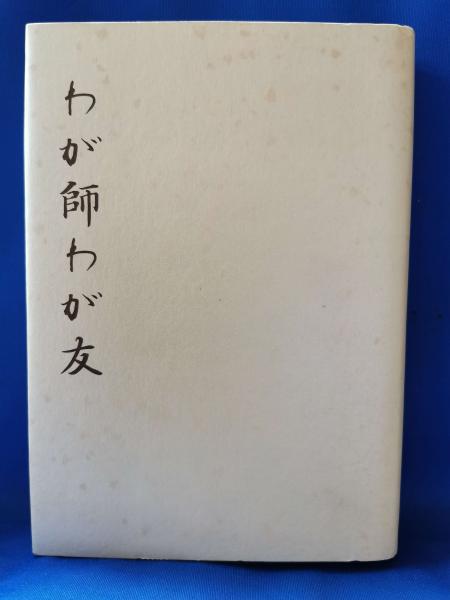 わが師わが友